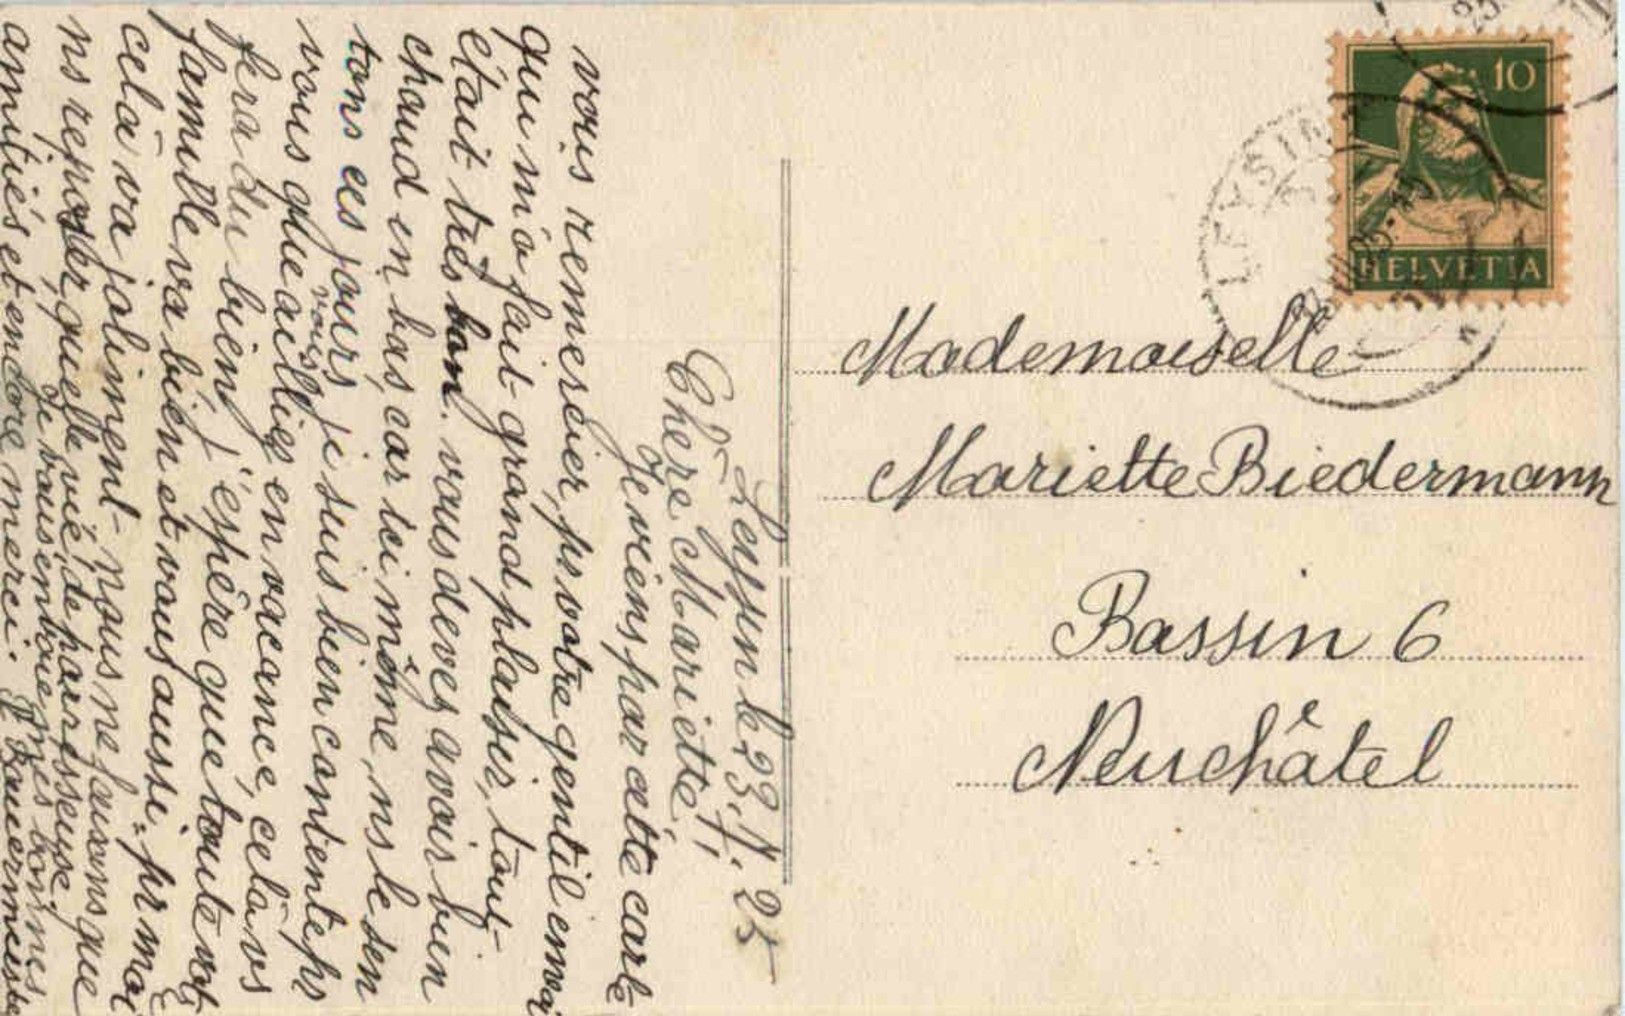 Leysin le 23. V. 25
Chère Mariette,
Je viens par cette carte
vous remercier pr votre gentil envoi
qui m'a fait grand plaisir, tout
était très bon. vous devez avoir bien
chaud en bas, car ici même, ns le sen
tons ces jours, je suis bien contente pr
vous que vous ailliez en vacance, cela vs
fera du bien, j'espère que toute vot
famille va bien et vous aussi, pr moi
cela va joliment nous ne faisons que
ns reposer, quelle vie de parrisseuse.
Je vous envoie mes bonnes
amitiés et encore merci.
HELVETIA
10
LEYSIN
Mademoiselle
Mariette Biedermann
Bassin 6
Neuchâtel